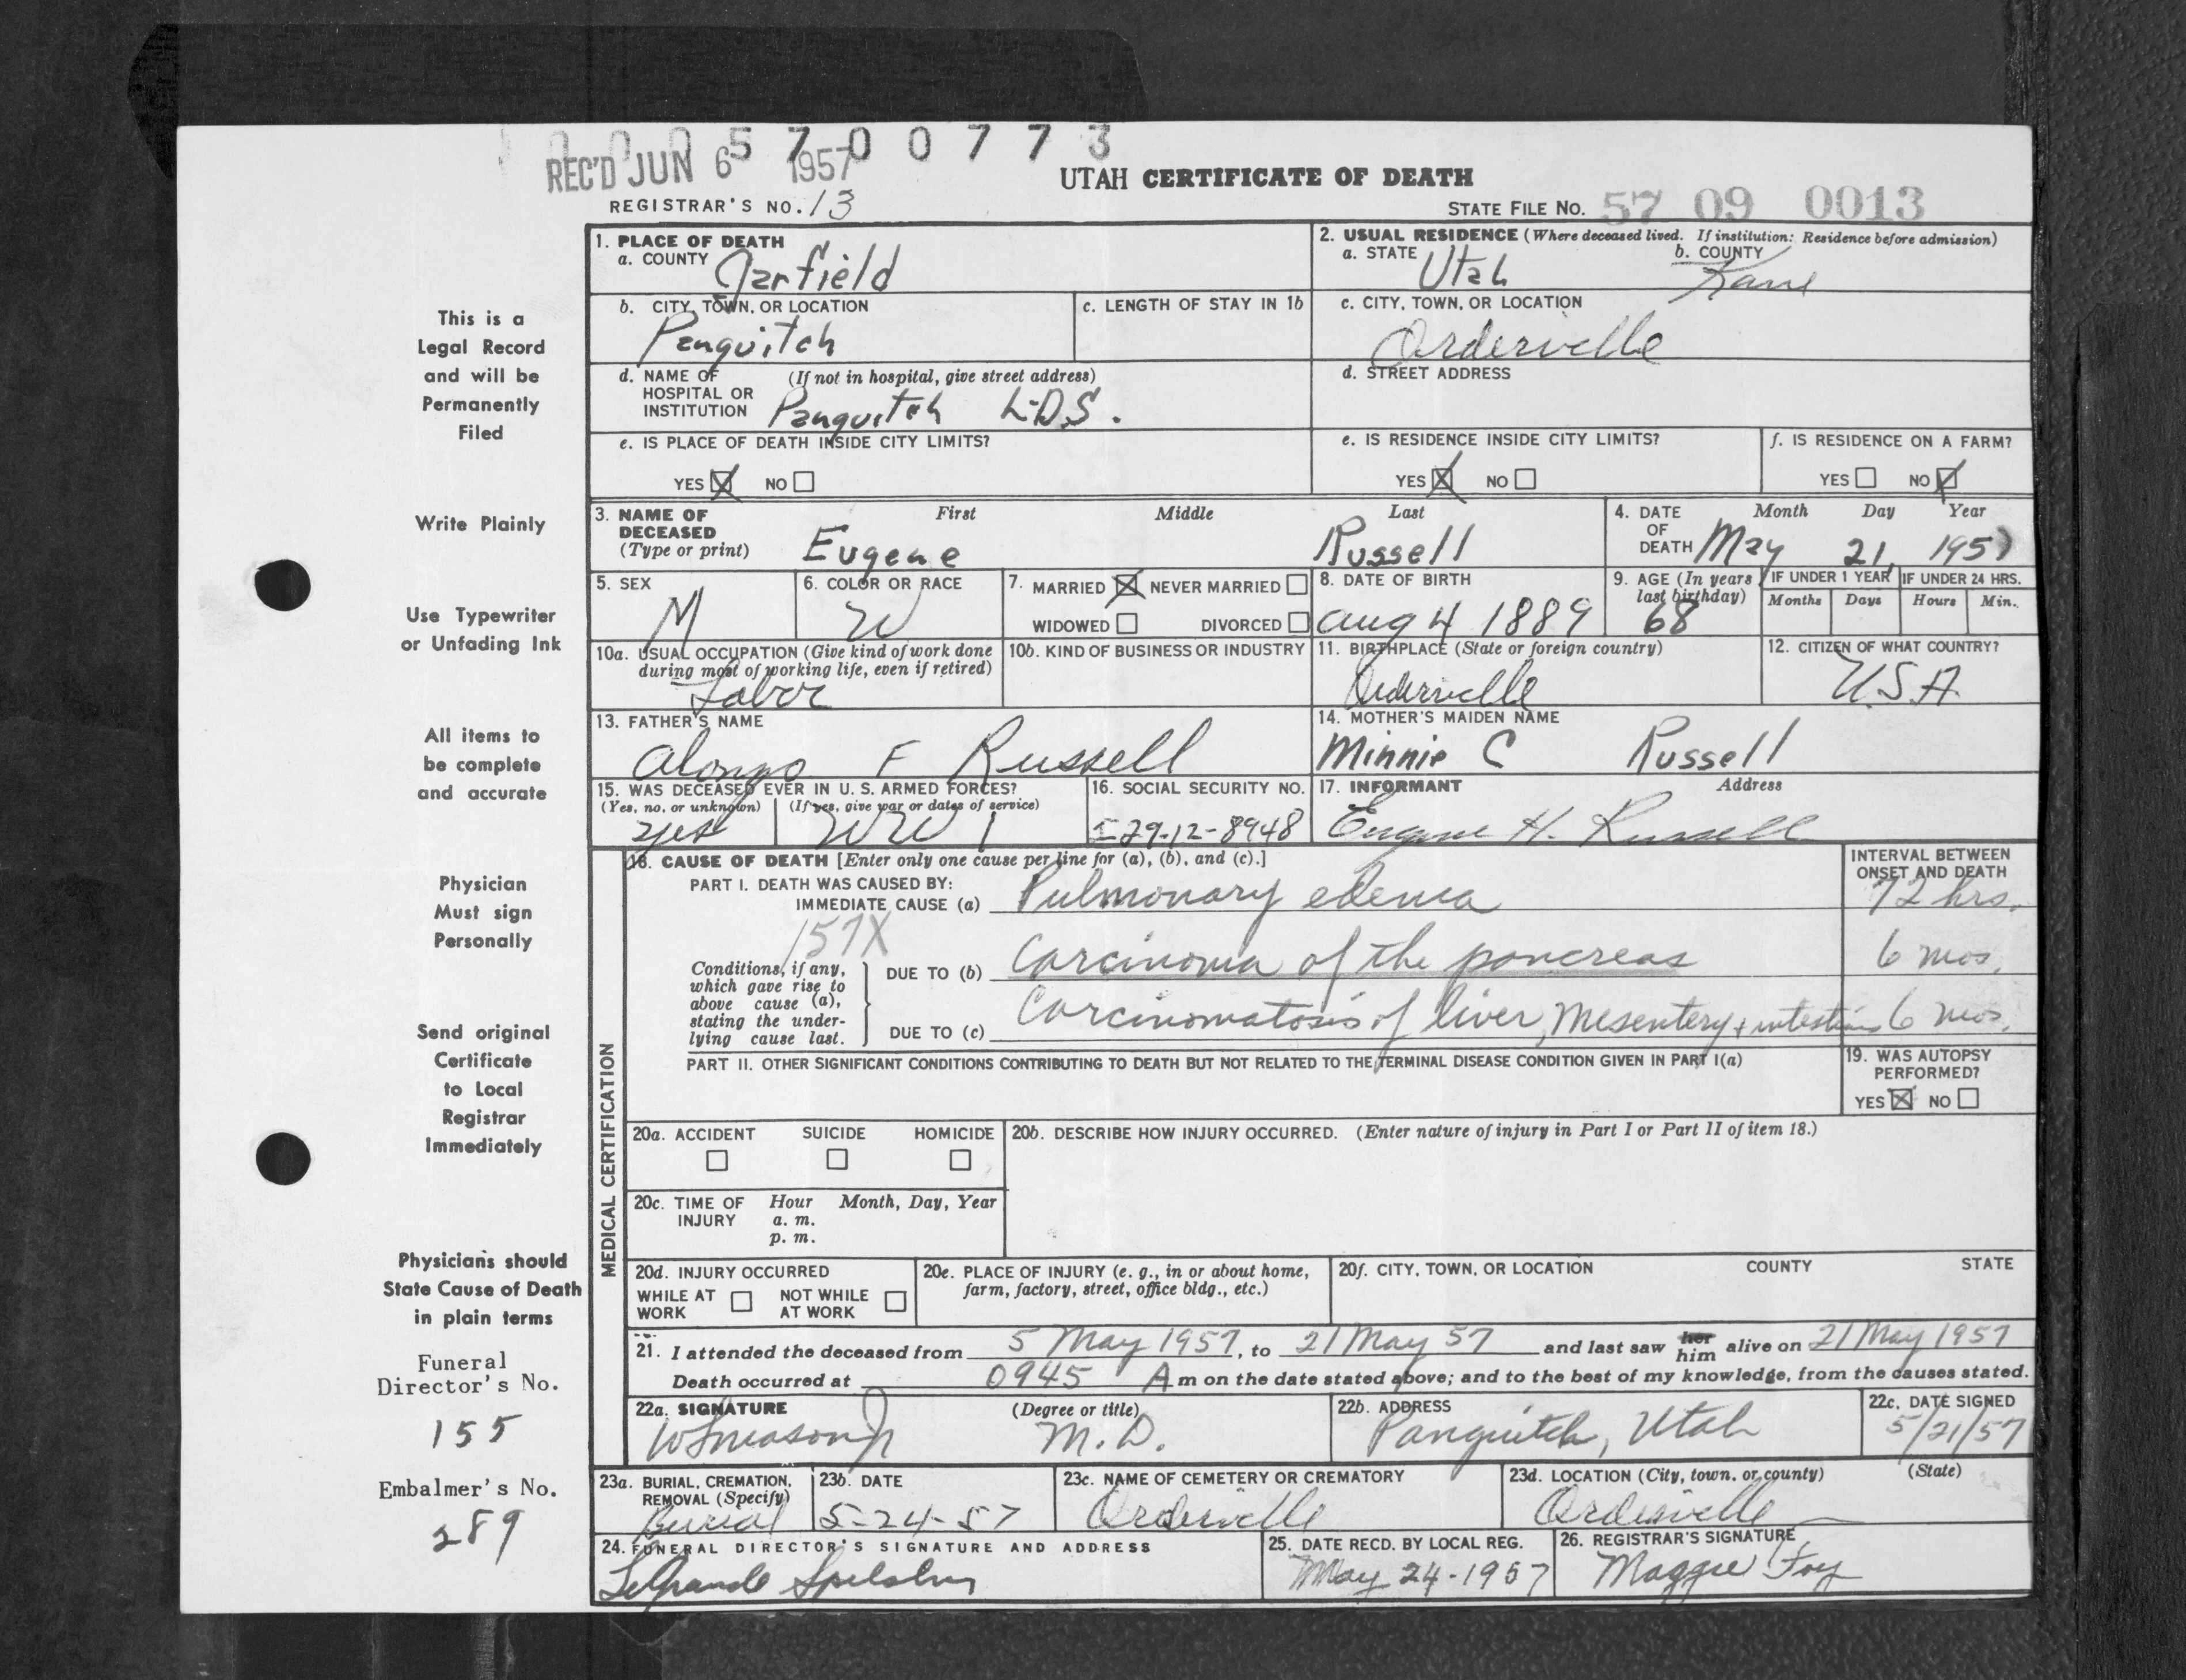 1 0 0 0 5 7 0 0 7 7 3
REC'D JUN 6 1957
UTAH CERTIFICATE OF DEATH
REGISTRAR'S NO. 13
STATE FILE NO. 57 09 0013
This is a
Legal Record
and will be
Permanently
Filed
Write Plainly
Use Typewriter
or Unfading Ink
All items to
be complete
and accurate
Physician
Must sign
Personally
Send original
Certificate
to Local
Registrar
Immediately
Physicians should
State Cause of Death
in plain terms
Funeral
Director's No.
155
Embalmer's No.
289
1. PLACE OF DEATH
a. COUNTY Garfield
2. USUAL RESIDENCE (Where deceased lived. If institution: Residence before admission)
a. STATE Utah b. COUNTY Kane
b. CITY, TOWN, OR LOCATION
Panguitch
c. LENGTH OF STAY IN 1b
c. CITY, TOWN, OR LOCATION
Orderville
d. NAME OF (If not in hospital, give street address)
HOSPITAL OR
INSTITUTION Panguitch L.D.S.
d. STREET ADDRESS
e. IS PLACE OF DEATH INSIDE CITY LIMITS?
YES X NO
e. IS RESIDENCE INSIDE CITY LIMITS?
YES X NO
f. IS RESIDENCE ON A FARM?
YES NO X
3. NAME OF First Middle Last
DECEASED
(Type or print) Eugene Russell
4. DATE Month Day Year
OF
DEATH May 21, 1957
5. SEX
M
6. COLOR OR RACE
W
7. MARRIED X NEVER MARRIED
WIDOWED DIVORCED
8. DATE OF BIRTH
Aug 4 1889
9. AGE (In years
last birthday)
68
IF UNDER 1 YEAR
Months Days
IF UNDER 24 HRS.
Hours Min.
10a. USUAL OCCUPATION (Give kind of work done
during most of working life, even if retired)
Labor
10b. KIND OF BUSINESS OR INDUSTRY
11. BIRTHPLACE (State or foreign country)
Orderville
12. CITIZEN OF WHAT COUNTRY?
U.S.A.
13. FATHER'S NAME
Alonzo F Russell
14. MOTHER'S MAIDEN NAME
Minnie C Russell
15. WAS DECEASED EVER IN U. S. ARMED FORCES?
(Yes, no, or unknown) (If yes, give war or dates of service)
yes WW 1
16. SOCIAL SECURITY NO.
529-12-8948
17. INFORMANT Address
Eugene H. Russell
MEDICAL CERTIFICATION
18. CAUSE OF DEATH [Enter only one cause per line for (a), (b), and (c).]
INTERVAL BETWEEN
ONSET AND DEATH
PART I. DEATH WAS CAUSED BY:
IMMEDIATE CAUSE (a) Pulmonary edema 72 hrs.
157X
Conditions, if any,
which gave rise to
above cause (a),
stating the under-
lying cause last.
DUE TO (b) Carcinoma of the pancreas 6 mos.
DUE TO (c) Carcinomatosis of liver, mesentery + intestines 6 mos.
PART II. OTHER SIGNIFICANT CONDITIONS CONTRIBUTING TO DEATH BUT NOT RELATED TO THE TERMINAL DISEASE CONDITION GIVEN IN PART I(a)
19. WAS AUTOPSY
PERFORMED?
YES X NO
20a. ACCIDENT SUICIDE HOMICIDE
20b. DESCRIBE HOW INJURY OCCURRED. (Enter nature of injury in Part I or Part II of item 18.)
20c. TIME OF Hour Month, Day, Year
INJURY a. m.
p. m.
20d. INJURY OCCURRED
WHILE AT NOT WHILE
WORK AT WORK
20e. PLACE OF INJURY (e. g., in or about home,
farm, factory, street, office bldg., etc.)
20f. CITY, TOWN, OR LOCATION COUNTY STATE
21. I attended the deceased from 5 May 1957, to 21 May 57 and last saw her him alive on 21 May 1957
Death occurred at 0945 A m on the date stated above; and to the best of my knowledge, from the causes stated.
22a. SIGNATURE (Degree or title)
W S Mason Jr M.D.
22b. ADDRESS
Panguitch, Utah
22c. DATE SIGNED
5/21/57
23a. BURIAL, CREMATION,
REMOVAL (Specify)
Burial
23b. DATE
5-24-57
23c. NAME OF CEMETERY OR CREMATORY
Orderville
23d. LOCATION (City, town, or county) (State)
Orderville
24. FUNERAL DIRECTOR'S SIGNATURE AND ADDRESS
LeGrande Spilsbury
25. DATE RECD. BY LOCAL REG.
May 24-1957
26. REGISTRAR'S SIGNATURE
Maggie Foy